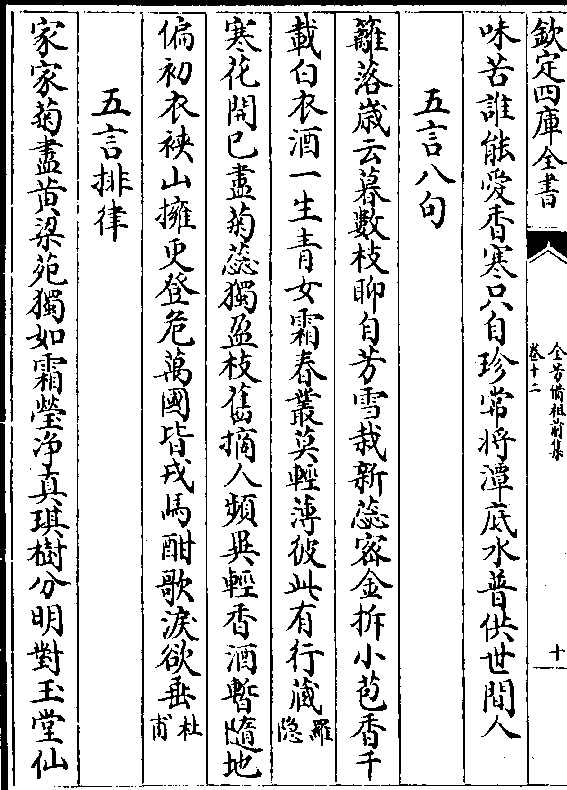 欽定四庫全書
全芳備祖前集
卷十二
十
味苦誰能愛香寒只自珍常將潭底水普供世間人
五言八句
籬落歳云暮數枝聊自芳雪栽新蕊密金拆小苞香千
載白衣酒一生青女霜春叢莫輕薄彼此有行藏羅隐
寒花開已盡菊蕊獨盈枝舊摘人頻異輕香酒暫隨地
偏初衣裌山擁更登危萬國皆戎馬酣歌淚欲垂杜甫
五言排律
家家菊盡黄梁苑獨如霜瑩净真琪樹分明對玉堂仙